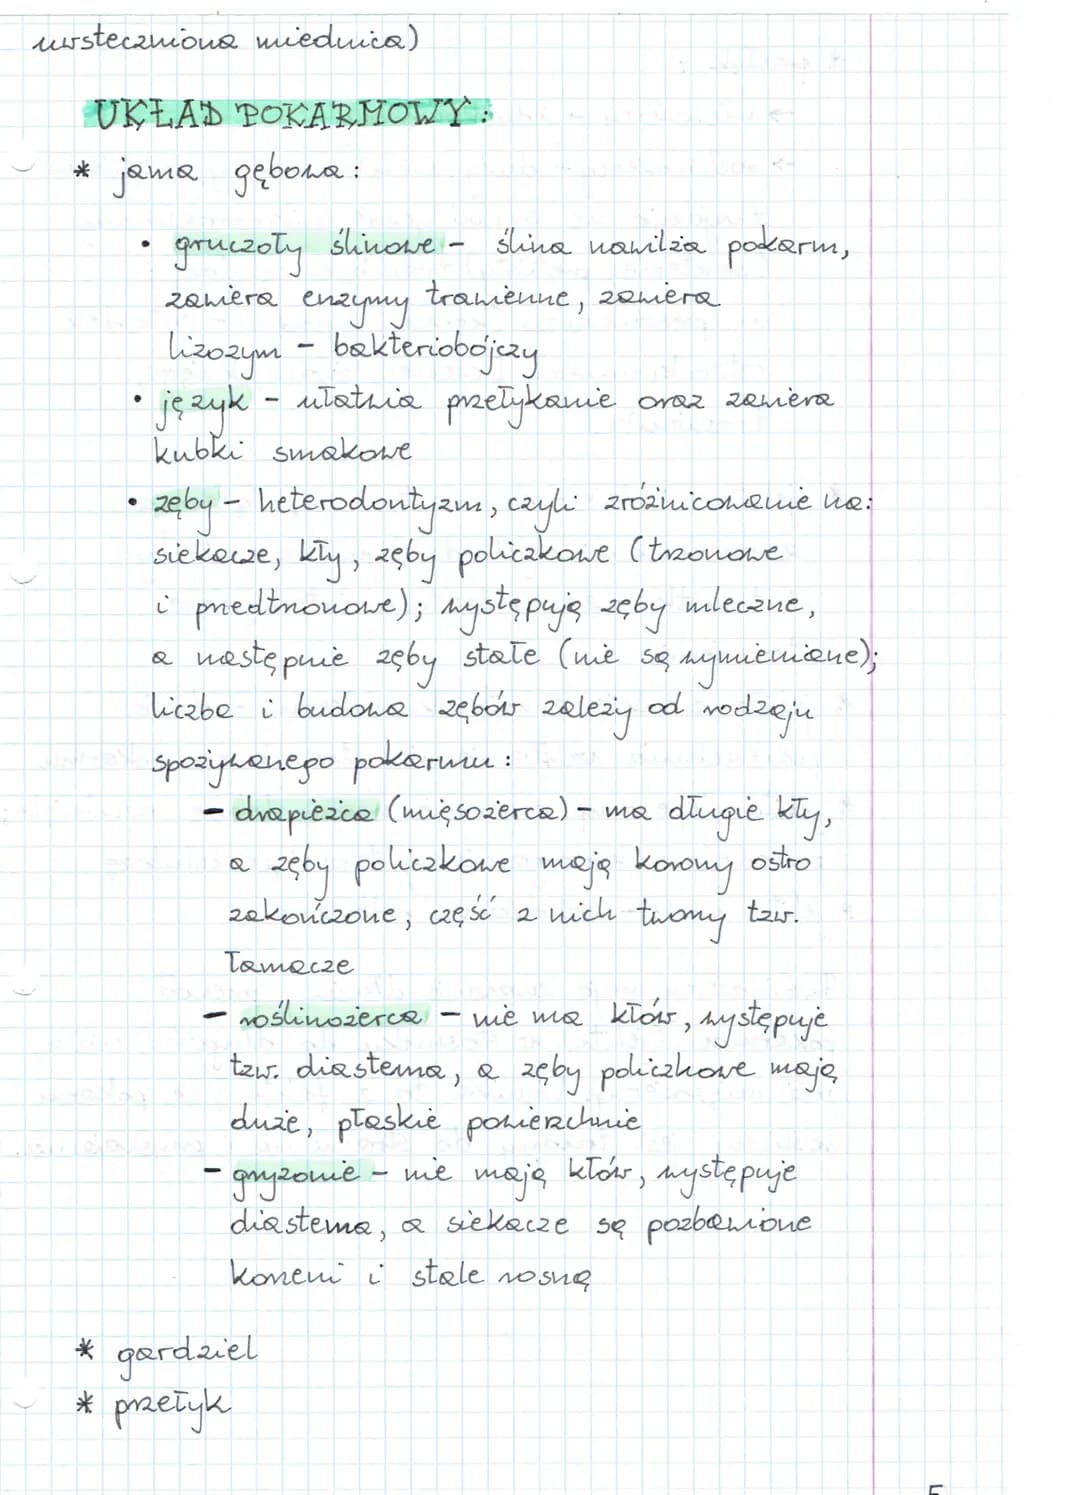 uwsteczniona miednica)
UKŁAD POKARMOWY:
* jama gębowa:
• gruczoły ślinowe - ślina nawilża pokarm,
zawiera enzymy trawienne, zawiera
lizozym - bakteriobójczy
• język - ułatwia przełykanie oraz zawiera
kubki smakowe
• zęby - heterodontyzm, czyli zróżnicowanie na:
siekacze, kły, zęby policzkowe (trzonowe
i przedtrzonowe); występują zęby mleczne,
a następnie zęby stałe (nie są wymieniane);
liczba i budowa zębów zależy od rodzaju
spożywanego pokarmu:
- drapieżca (mięsożerca) - ma długie kły,
a zęby policzkowe mają korony ostro
zakończone, część z nich tworzy tzw.
łamacze
- roślinożerca - nie ma kłów, występuje
tzw. diastema, a zęby policzkowe mają
duże, płaskie powierzchnie
- gryzonie - nie mają kłów, występuje
diastema, a siekacze są pozbawione
korzeni i stale rosną
* gardziel
* przełyk
5